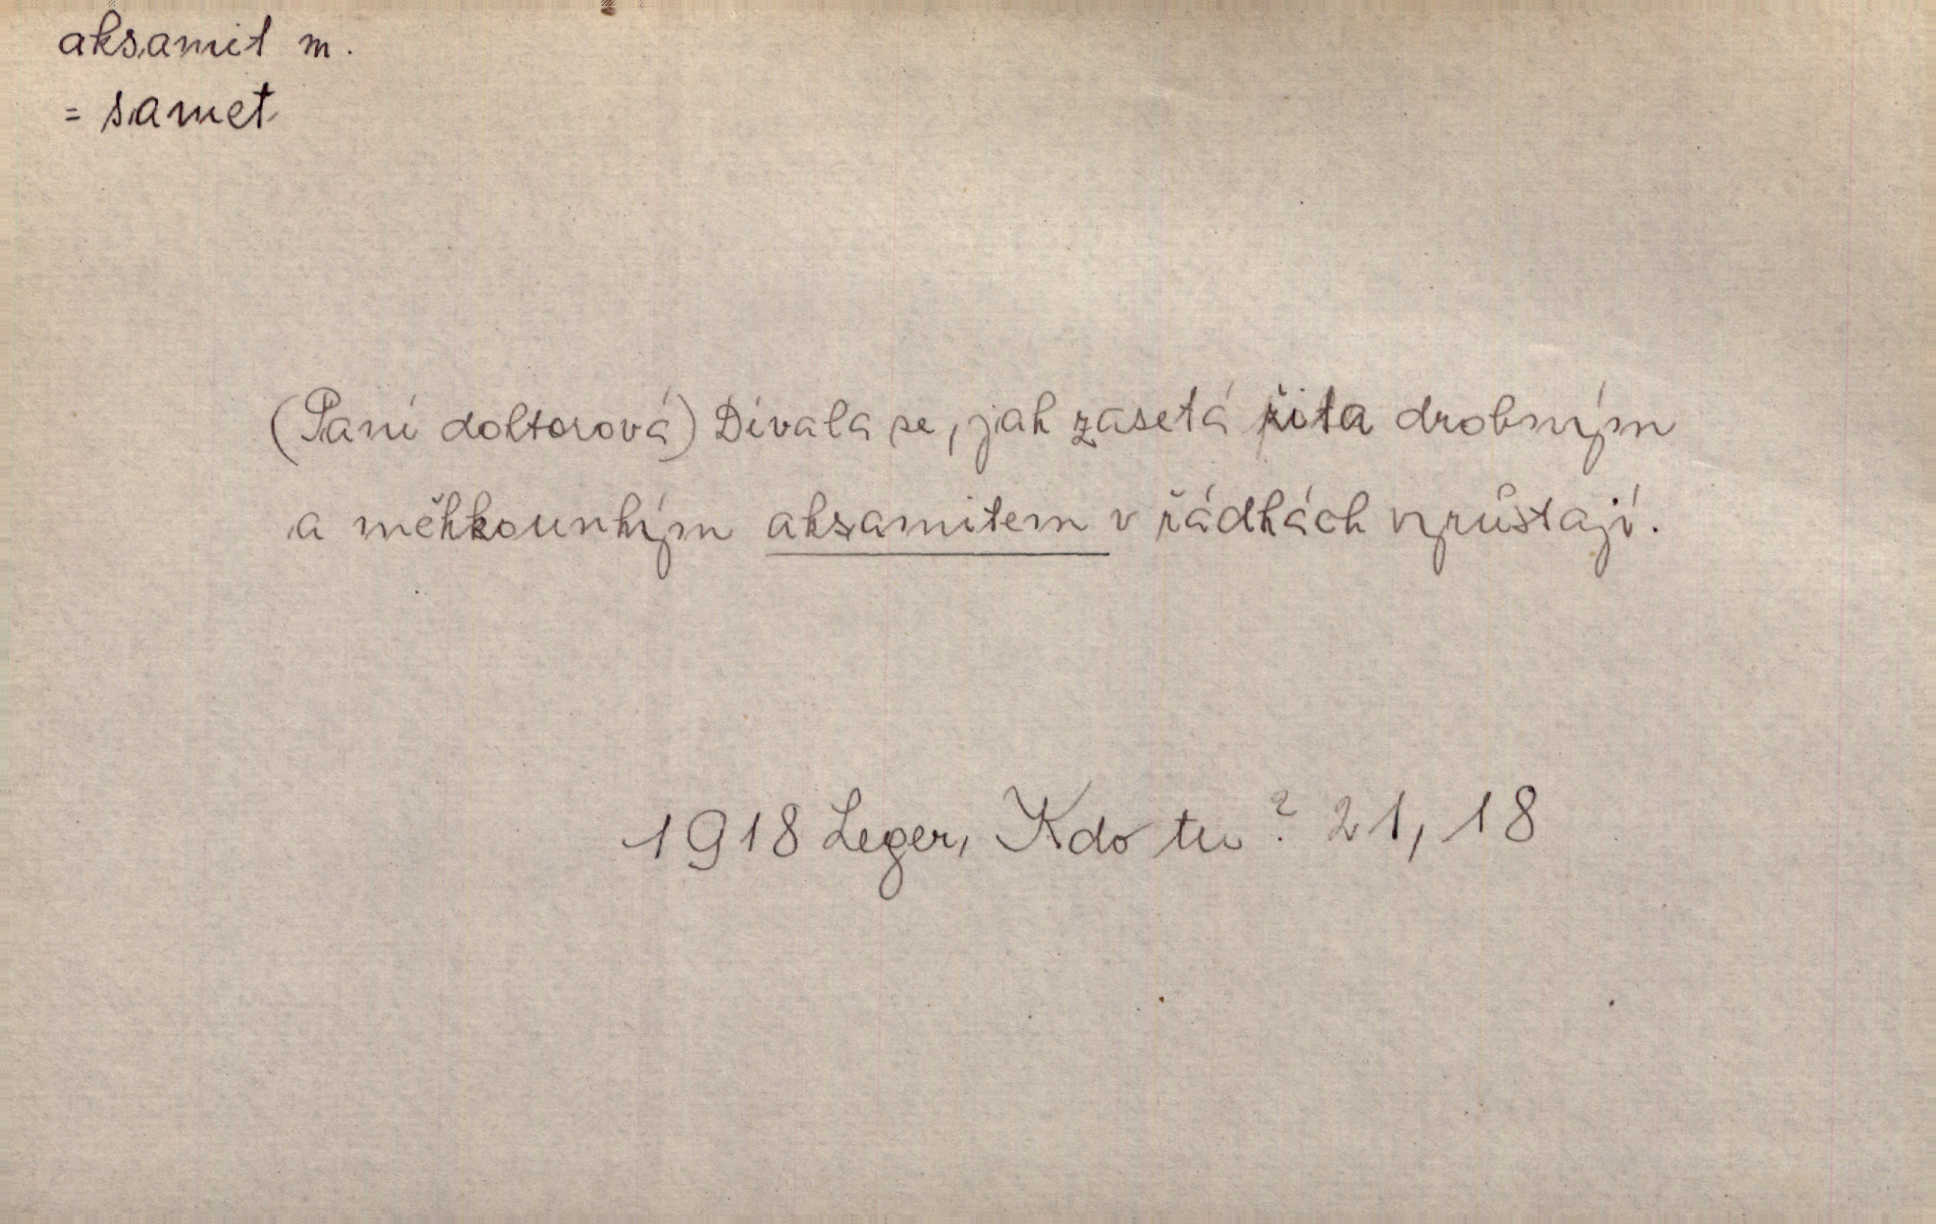 aksamit m.
= samet
(Paní doktorová) Dívala se, jak zasetá žita drobným
a měkkounkým aksamitem v řádkách vzrůstají.
1918 Leger, Kdo tu? 21, 18